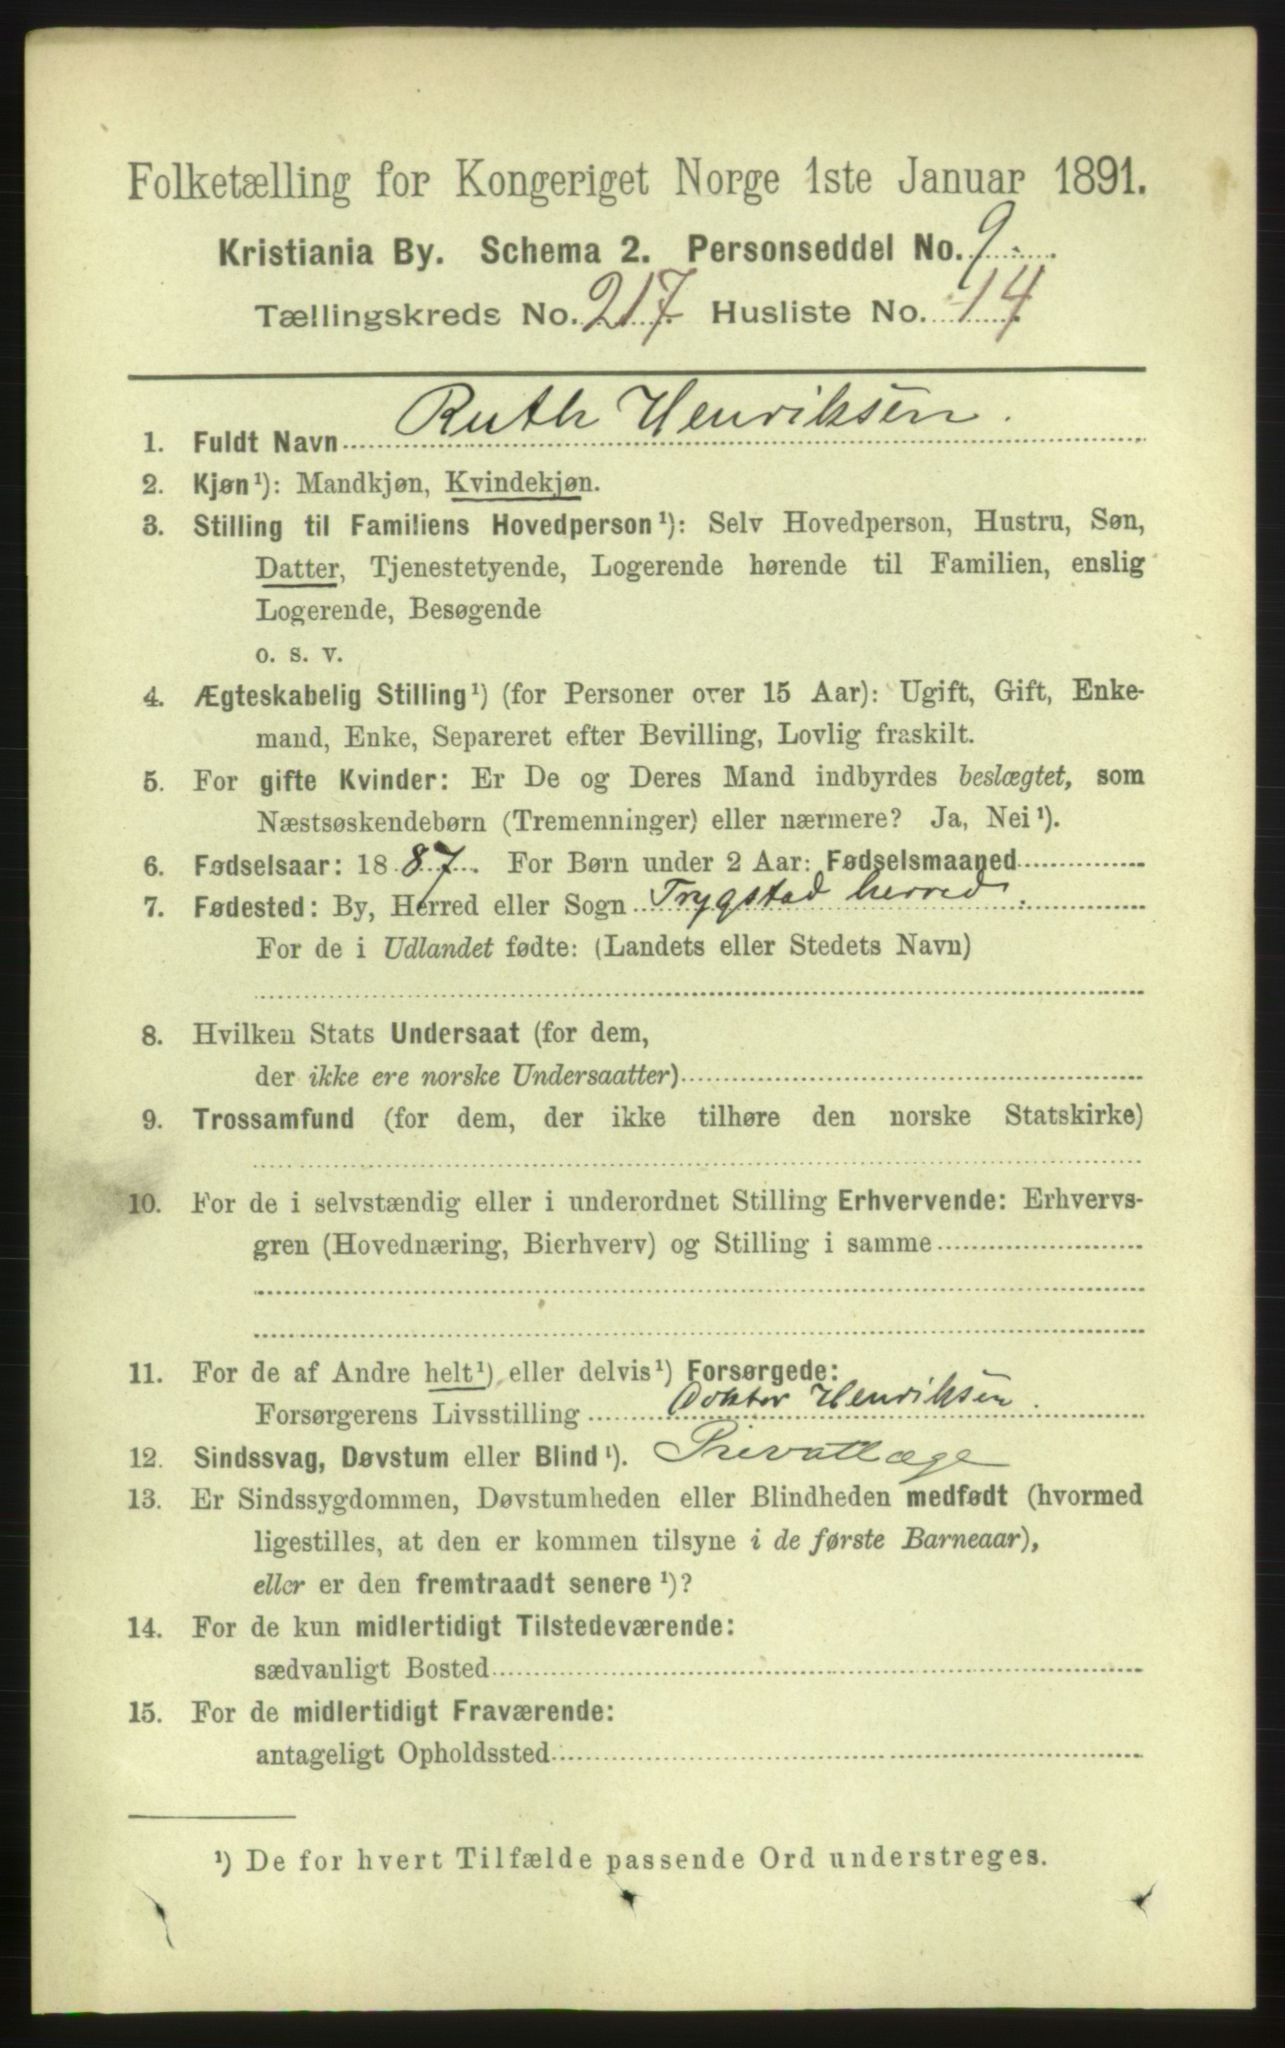 Folketælling for Kongeriget Norge 1ste Januar 1891.
Kristiania By. Schema 2. Personseddel No. 9
Tællingskreds No. 217 Husliste No. 14
1. Fuldt Navn Ruth Henriksen.
2. Kjøn¹): Mandkjøn, Kvindekjøn.
3. Stilling til Familiens Hovedperson¹): Selv Hovedperson, Hustru, Søn,
Datter, Tjenestetyende, Logerende hørende til Familien, enslig
Logerende, Besøgende
o. s. v.
4. Ægteskabelig Stilling¹) (for Personer over 15 Aar): Ugift, Gift, Enke-
mand, Enke, Separeret efter Bevilling, Lovlig fraskilt.
5. For gifte Kvinder: Er De og Deres Mand indbyrdes beslægtet, som
Næstsøskendebørn (Tremenninger) eller nærmere? Ja, Nei¹).
6. Fødselsaar: 1887. For Børn under 2 Aar: Fødselsmaaned
7. Fødested: By, Herred eller Sogn Trygstad herred.
For de i Udlandet fødte: (Landets eller Stedets Navn)
8. Hvilken Stats Undersaat (for dem,
der ikke ere norske Undersaatter)
9. Trossamfund (for dem, der ikke tilhøre den norske Statskirke)
10. For de i selvstændig eller i underordnet Stilling Erhvervende: Erhvervs-
gren (Hovednæring, Bierhverv) og Stilling i samme
11. For de af Andre helt¹) eller delvis¹) Forsørgede:
Forsørgerens Livsstilling Doktor Henriksen.
12. Sindssvag, Døvstum eller Blind¹). Privatlæge
13. Er Sindssygdommen, Døvstumheden eller Blindheden medfødt (hvormed
ligestilles, at den er kommen tilsyne i de første Barneaar),
eller er den fremtraadt senere¹)?
14. For de kun midlertidigt Tilstedeværende:
sædvanligt Bosted
15. For de midlertidigt Fraværende:
antageligt Opholdssted
¹) De for hvert Tilfælde passende Ord understreges.